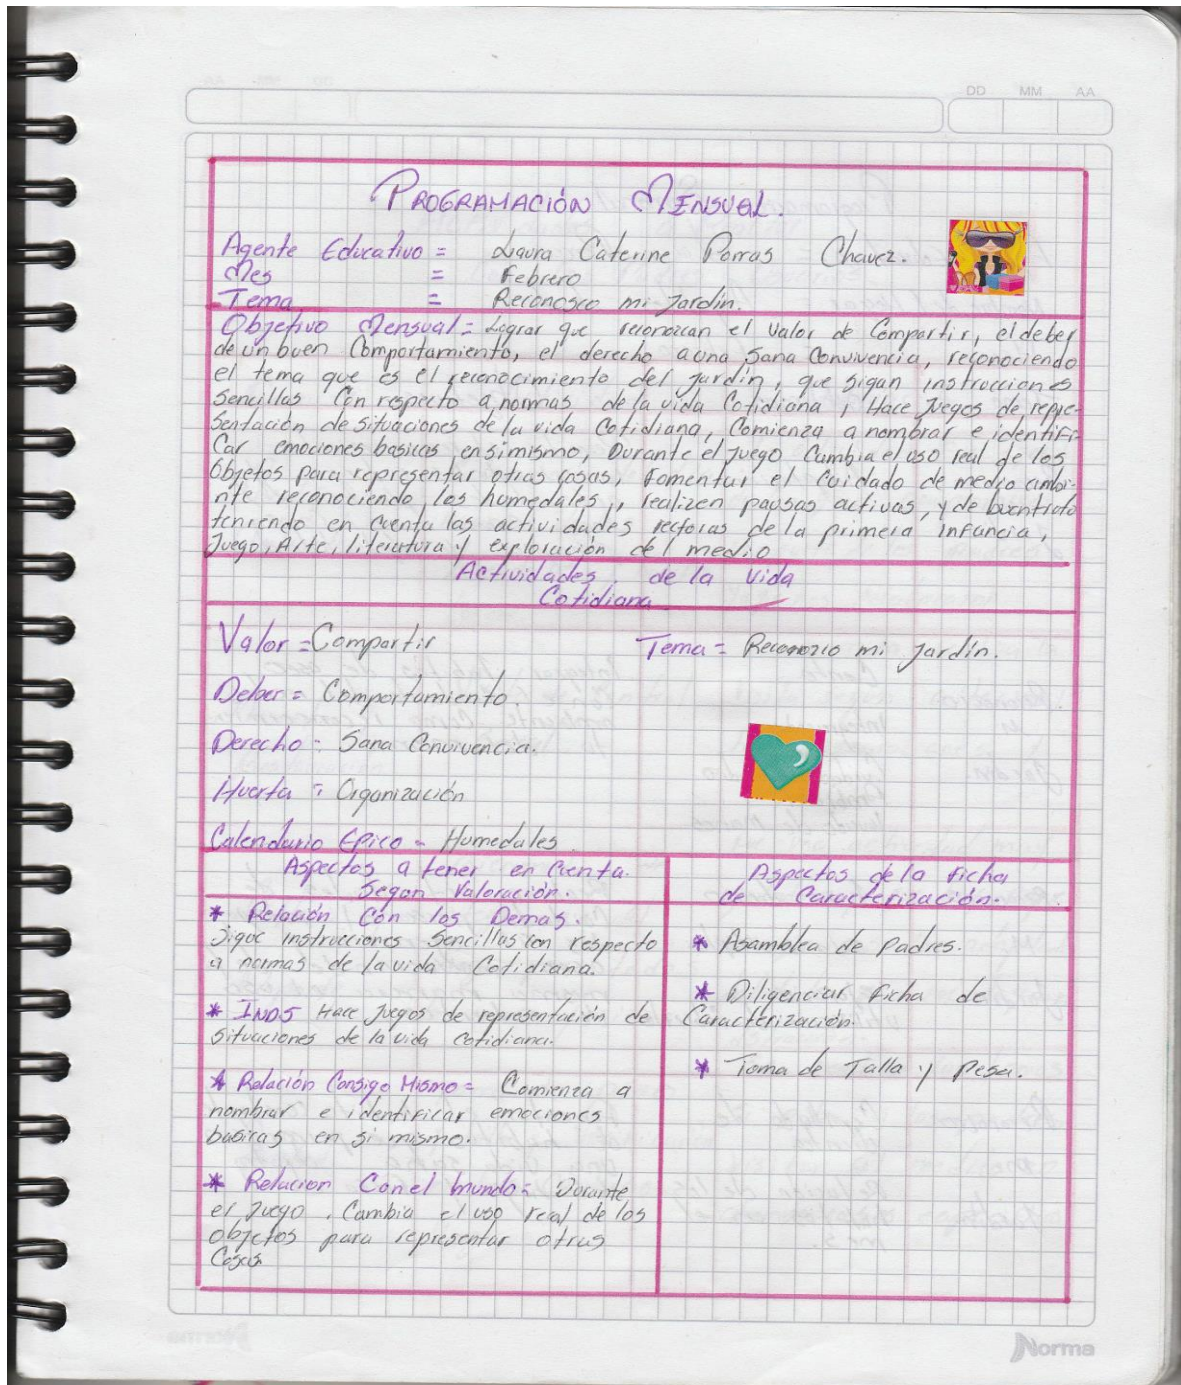 DD MM AA
PROGRAMACIÓN MENSUAL.
Agente Educativo = Laura Caterine Porras Chavez.
Mes = Febrero
Tema = Reconosco mi Jardín.
Objetivo Mensual = Lograr que reconozcan el Valor de Compartir, el deber
de un buen Comportamiento, el derecho a una Sana Convivencia, reconociendo
el tema que es el reconocimiento del jardín, que sigan instrucciones
Sencillas Con respecto a normas de la vida Cotidiana, Hace Juegos de repre-
sentación de Situaciones de la vida Cotidiana, Comienza a nombrar e identifi-
Car emociones basicas en si mismo, Durante el Juego Cambia el uso real de los
Objetos para representar otras cosas, Fomentar el Cuidado de medio ambi-
nte reconociendo los humedales, realizen pausas activas, y de buentrato
teniendo en cuenta las actividades rectoras de la primera infancia,
Juego, Arte, literatura y exploración del medio
Actividades de la Vida
Cotidiana
Valor = Compartir Tema = Reconozco mi Jardín.
Deber = Comportamiento.
Derecho = Sana Convivencia.
Huerta = Organización
Calendario Epico = Humedales
Aspectos a tener en Cuenta.
Segun Valoración.
* Relación Con los Demas.
Sigue instrucciones Sencillas con respecto
a normas de la vida Cotidiana.
* IND5 Hace Juegos de representación de
Situaciones de la vida cotidiana.
* Relación Consigo Mismo = Comienza a
nombrar e identificar emociones
basicas en si mismo.
* Relacion Con el mundo = Durante
el Juego. Cambia el uso real de los
objetos para representar otras
Cosas
Aspectos de la Ficha
de Caracterización.
* Asamblea de Padres.
* Diligenciar Ficha de
Caracterización.
* Toma de Talla y Pesa.
Norma